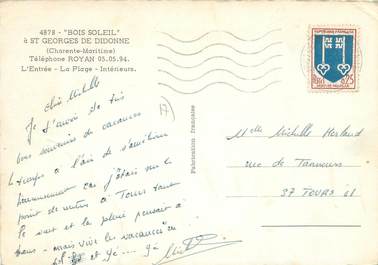 4878 - "BOIS SOLEIL"
à ST GEORGES DE DIDONNE
(Charente-Maritime)
Téléphone ROYAN 05.05.94
L'Entrée - La Plage - Intérieurs.
REPUBLIQUE FRANÇAISE
0,25
Chère Michelle
17
Je t'envoie de très
bons souvenirs de vacances
le temps a l'air de s'améliorer
heureusement car j'étais sur le
point de rentrer à Tours tant
le vent et la pluie
mais vive les vacances
Fabrication française
Melle Michelle
rue de Tanneurs
37 TOURS 01